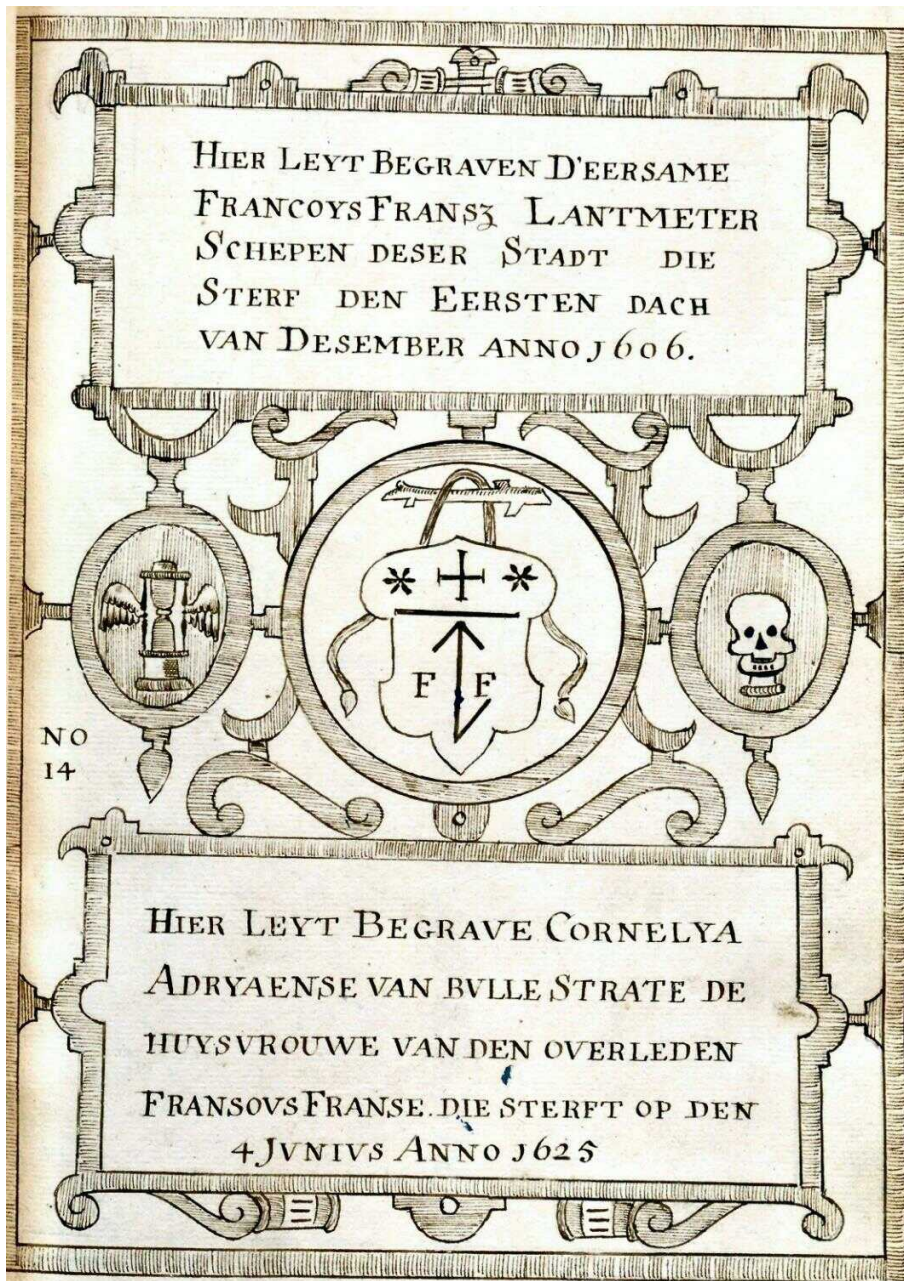 HIER LEYT BEGRAVEN D'EERSAME
FRANCOYS FRANSZ LANTMETER
SCHEPEN DESER STADT DIE
STERF DEN EERSTEN DACH
VAN DESEMBER ANNO 1606.
F F
NO
14
HIER LEYT BEGRAVE CORNELYA
ADRYAENSE VAN BVLLE STRATE DE
HUYSVROUWE VAN DEN OVERLEDEN
FRANSOVS FRANSE. DIE STERFT OP DEN
4 JVNIVS ANNO 1625